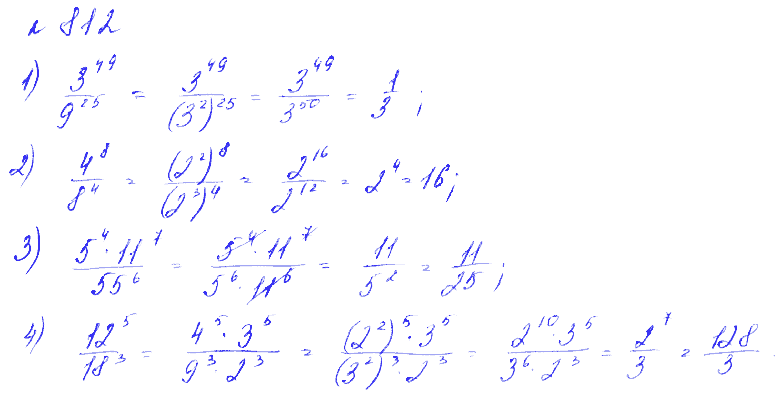 № 812
1) 3^49/9^25 = 3^49/(3^2)^25 = 3^49/3^50 = 1/3;
2) 4^8/8^4 = (2^2)^8/(2^3)^4 = 2^16/2^12 = 2^4 = 16;
3) 5^4·11^7/55^6 = 5^4·11^7/5^6·11^6 = 11/5^2 = 11/25;
4) 12^5/18^3 = 4^5·3^5/9^3·2^3 = (2^2)^5·3^5/(3^2)^3·2^3 = 2^10·3^5/3^6·2^3 = 2^7/3 = 128/3